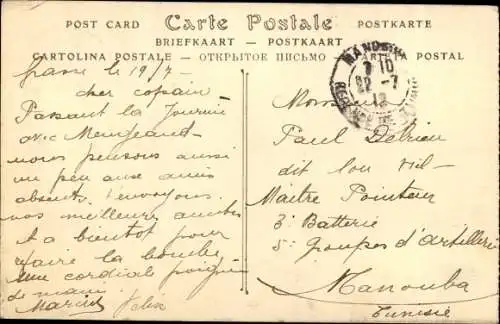 POST CARD Carte Postale POSTKARTE
BRIEFKAART - POSTKAART
CARTOLINA POSTALE - ОТКРЫТОЕ ПИСЬМО - CARTA POSTAL
le 19/7 -
cher copain
Passant la journée
avec
nous pensons aussi
un peu aux amis
absents.
nos meilleures
et a bientôt pour
faire la bombe
Une cordial poignée
de main
Marius
MANOUBA
7 10
22 - 7
12
REGENCE DE TUNIS
Monsieur
Paul Delrieu
dit
Maître Pointeur
3e Batterie
5e groupes d'artillerie
Manouba
Tunisie